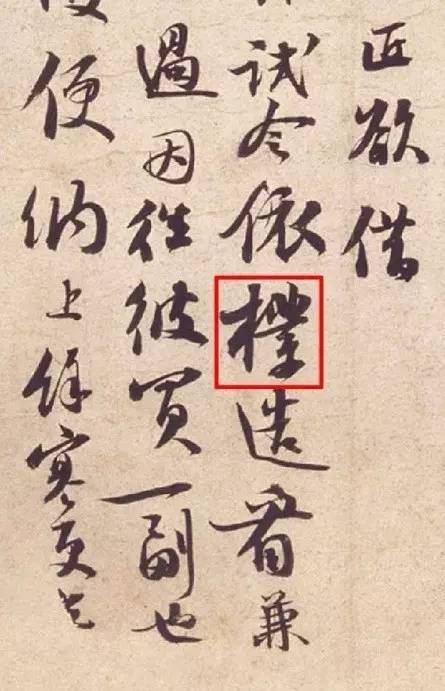 匠欲借
試令依樣造看兼
過因往彼買一副也
便納上餘寒更乞